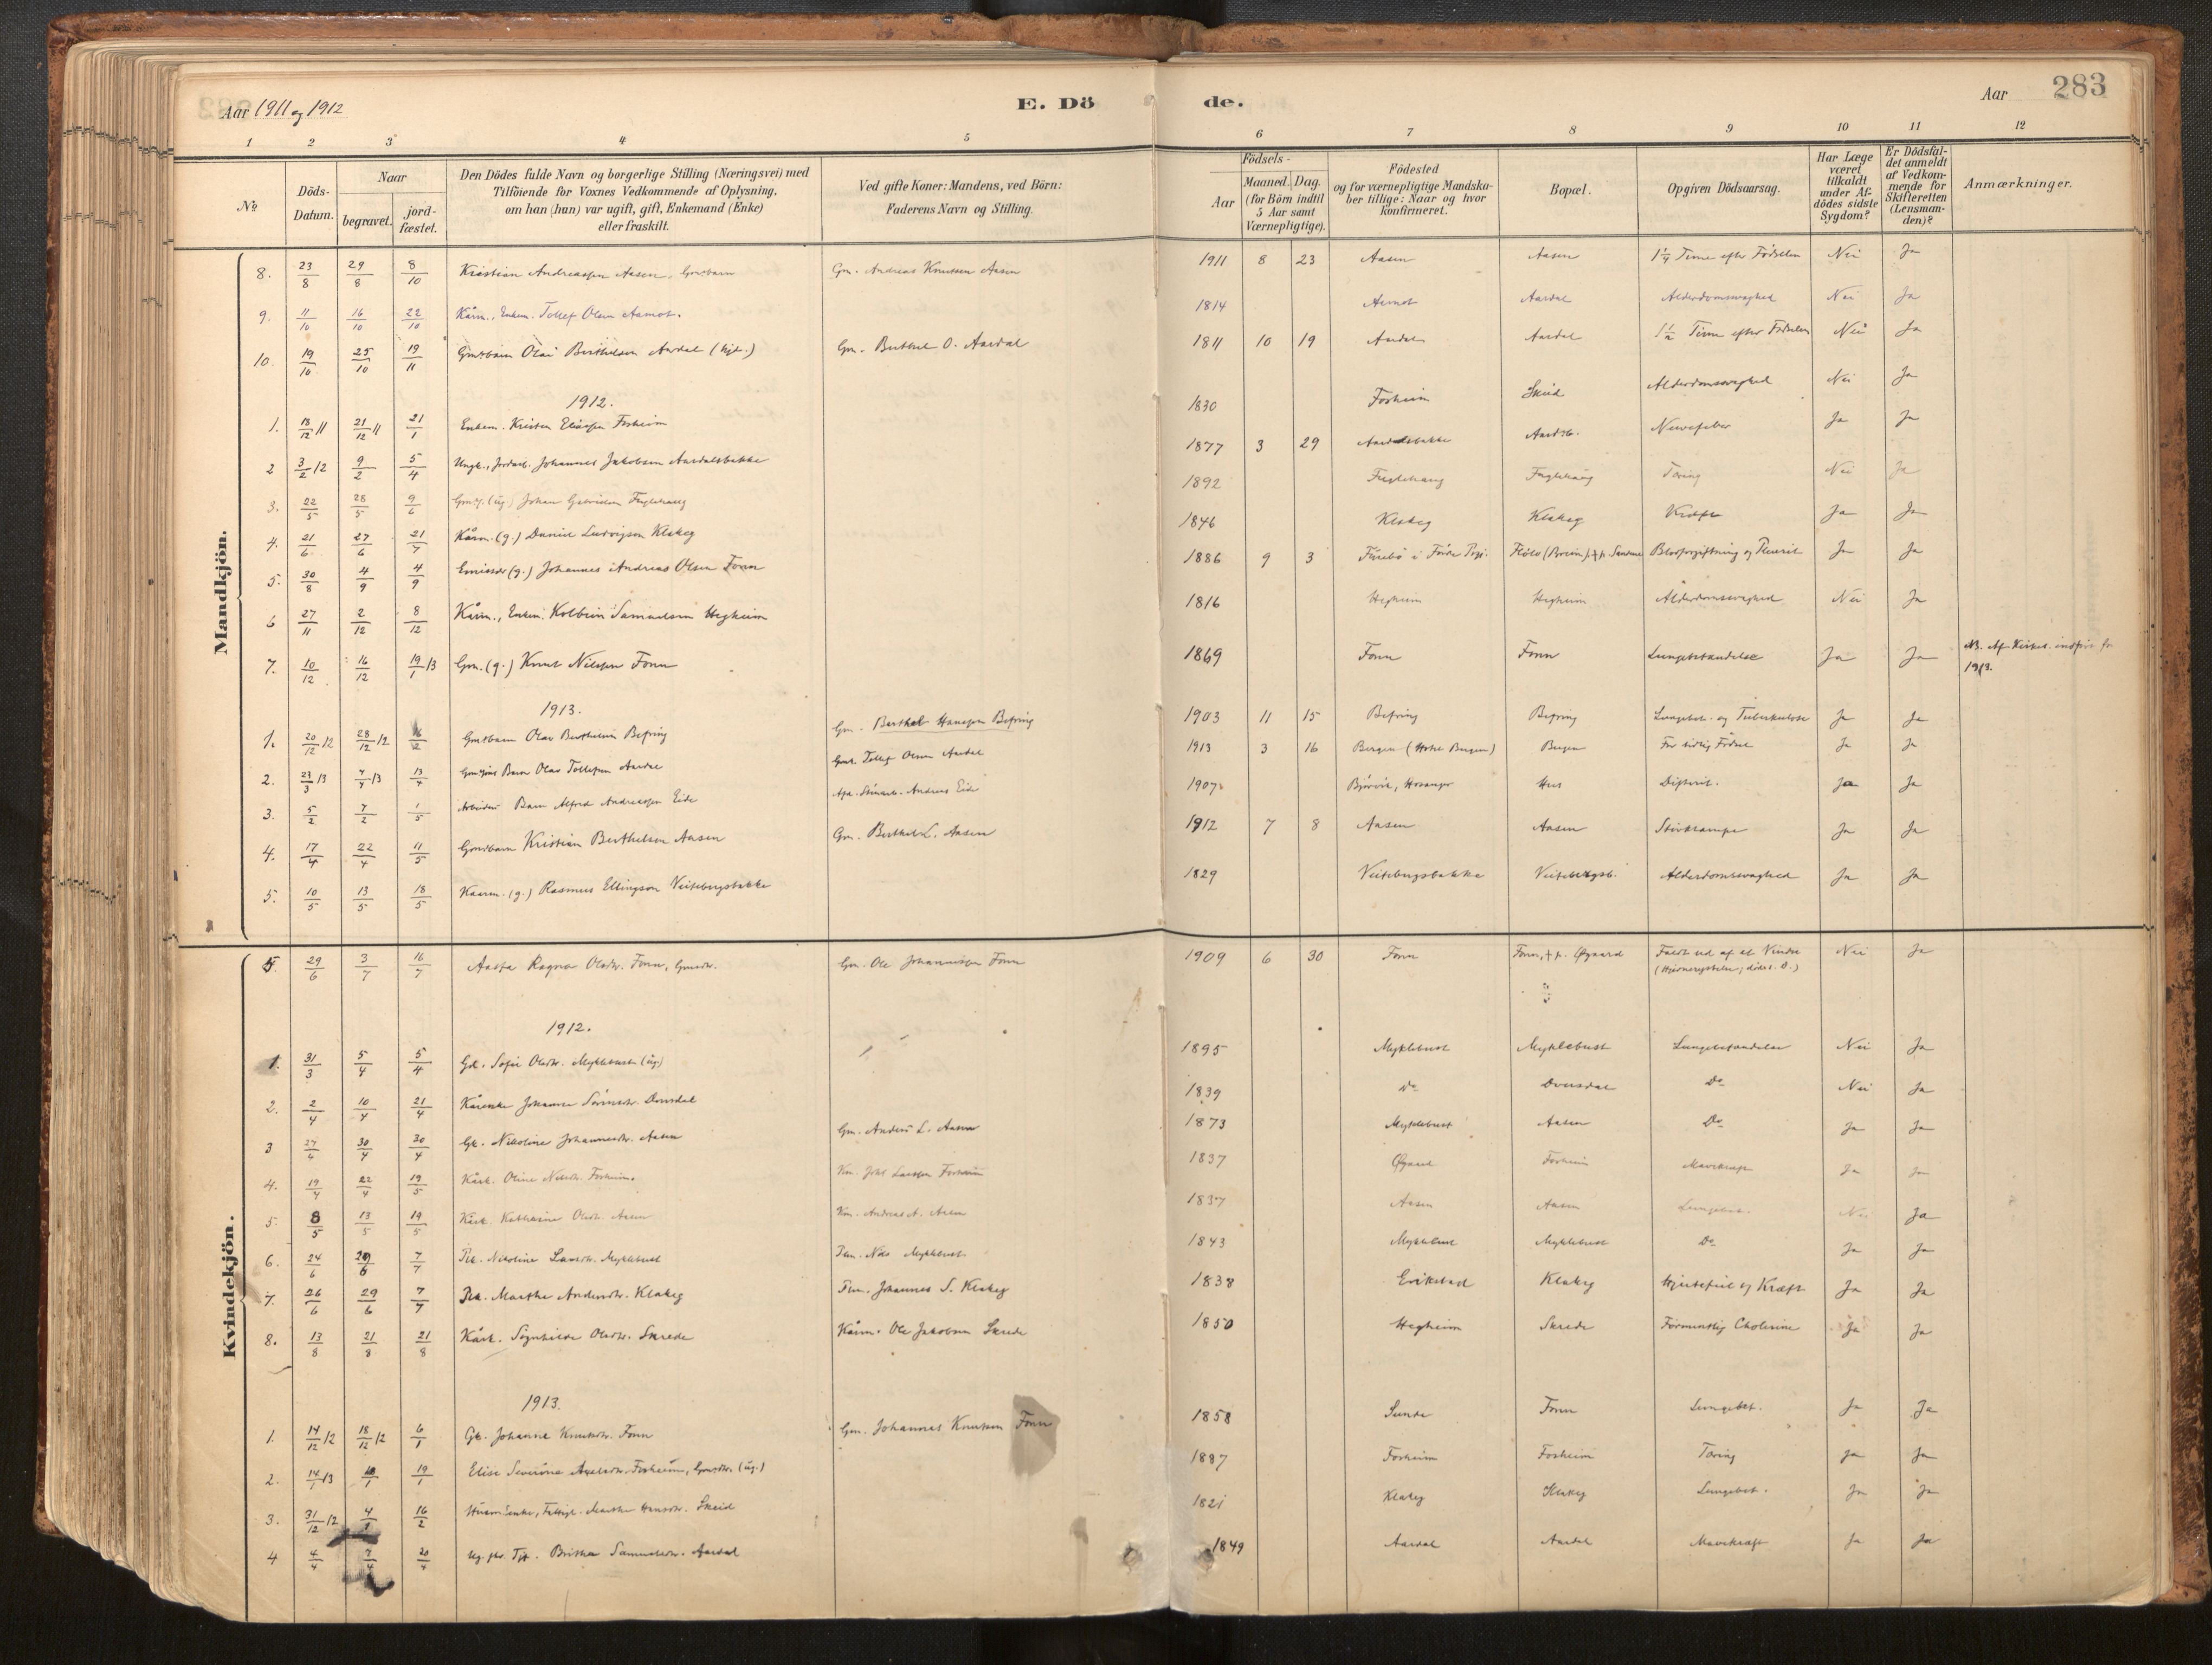 Aar 1911 og 1912
E. Dö de.
Aar
283
1 2 3 4 5 6 7 8 9 10 11 12
No
Döds-Datum.
Naar
begravet. jord-fæstet.
Den Dödes fulde Navn og borgerlige Stilling (Næringsvei) med
Tilföiende for Voxnes Vedkommende af Oplysning,
om han (hun) var ugift, gift, Enkemand (Enke)
eller fraskilt.
Ved gifte Koner: Mandens, ved Börn:
Faderens Navn og Stilling.
Födsels-
Aar
Maaned. Dag.
(for Börn indtil
5 Aar samt
Værnepligtige).
Födested
og for værnepligtige Mandska-
ber tillige: Naar og hvor
Konfirmeret.
Bopæl.
Opgiven Dödsaarsag.
Har Læge
været
tilkaldt
under Af-
dödes sidste
Sygdom?
Er Dödsfal-
det anmeldt
af Vedkom-
mende for
Skifteretten
(Lensman-
den)?
Anmærkninger.
Mandkjön.
8. 23/8 29/8 8/10 Kristian Andreassen Aasen, Gmdbarn Gm. Andreas Knutsen Aasen 1911 8 23 Aasen Aasen 1/4 Time efter Fødselen Nei Ja
9. 11/10 16/10 22/10 Kårm., Enkem. Tollef Olsen Aamot. 1814 Aamot Aardal Alderdomssvaghed Nei Ja
10. 19/10 25/10 19/11 Gmdbarn Olai Berthelsen Aardal (hjd.) Gm. Berthel O. Aardal 1811 10 19 Aardal Aardal 1 1/2 Time efter Fødselen Nei Ja
1912.
1. 18/12 11 21/12 11 21/1 Enkem. Kristen Eliassen Fosheim 1830 Fosheim Skeid Alderdomssvaghed Nei Ja
2 3/2 12 9/2 5/4 Ungk., Jordarb. Johannes Jakobsen Aardalsbakke 1877 3 29 Aardalsbakke Aardsb. Nervefeber Ja Ja
3. 22/5 28/5 9/6 (ug.) Johan Fuglehaug 1892 Fuglehaug Fuglehaug Tæring Nei Ja
4. 21/6 27/6 21/7 Kårm. (g.) Daniel Ludvigson Klakeg 1846 Klakeg Klakeg Kræft Ja Ja
5. 30/8 4/9 4/9 Emissær (g.) Johannes Andreas Olsen Fonn 1886 9 3 Førde Flölo (Breim), Blodforgiftning og Pleurit Ja Ja
6 27/11 2/12 8/12 Kårm., Enkem. Kolbein Samuelsen Hegheim 1816 Hegheim Hegheim Alderdomssvaghed Nei Ja
7. 10/12 16/12 19/1 13 Gm. (g.) Knut Nilssen Fonn 1869 Fonn Fonn Lungebetændelse Ja Ja NB. Af Kirkes. indført for
1913.
1913.
1. 20/12 12 28/12 12 16/2 Gmdbarn Olav Berthelsen Befring Gm. Berthel Hanssen Befring 1903 11 15 Befring Befring Lungebet. og Tuberkulose Ja Ja
2. 23/3 13 7/4 13 13/4 Barn Olav Tollefsen Aardal Tollef Olsen Aardal 1913 3 16 Bergen (Hotel Bergen) Bergen For tidlig Fødsel Ja Ja
3. 5/2 7/2 1/5 Arbeider Barn Alfred Andreassen Eide Andreas Eide 1907 Bjørvik, Hosanger Hus Difterit. Ja Ja
4. 17/4 22/4 11/5 Gmdbarn Kristian Berthelsen Aasen Gm. Berthel L. Aasen 1912 7 8 Aasen Aasen Stivkrampe Ja Ja
5. 10/5 13/5 18/5 Kaarm. (g.) Rasmus Ellingson Veitebergsbakke 1829 Veitebergsbakke Veitebergsb. Alderdomssvaghed Ja Ja
Kvindekjön.
5. 29/6 3/7 16/7 Aasta Ragna Olsdtr. Fonn, Gmdtr. Gm. Ole Johannessen Fonn 1909 6 30 Fonn Fonn, Øygaard Faldt ud af et Vindu Nei Ja
(Hjernerystelse; døde s. D.)
1912.
1. 31/3 5/4 5/4 Gd. Sofie Olsdtr. Myklebust (ug) 1895 Myklebust Myklebust Lungebetændelse Nei Ja
2. 2/4 10/4 21/4 Kårenke Johanne Dvergsdal 1839 Do Dvergsdal Do Nei Ja
3 27/4 30/4 30/4 Gk. Nikoline Johannesdtr. Aasen Gm. Anders L. Aasen 1873 Myklebust Aasen Do Ja Ja
4. 19/4 22/4 19/5 Kårk. Oline Nilsdtr. Fosheim. Larssen Fosheim 1837 Øygaard Fosheim Mavekræft Ja Ja
5. 8/5 13/5 19/5 Kårk. Katharine Olsdtr. Aasen Km. Andreas A. Aasen 1837 Aasen Aasen Lungebet. Nei Ja
6. 24/6 29/6 7/7 Nikoline Larsdtr. Myklebust Nils Myklebust 1843 Myklebust Myklebust Do Ja Ja
7. 26/6 29/6 7/7 Marthe Andersdtr. Klakeg Johannes S. Klakeg 1838 Erikstad Klakeg Hjertefeil og Kræft Ja Ja
8. 13/8 21/8 21/8 Kårk. Sygnhilde Olsdtr. Skrede Kårm. Ole Jakobsen Skrede 1850 Hegheim Skrede Formentlig Cholerine Ja Ja
1913.
1. 14/12 12 18/12 12 6/1 Gk. Johanna Knutsdtr. Fonn Gm. Johannes Knutsen Fonn 1858 Sunde Fonn Lungebet. Ja Ja
2. 14/1 13 19/1 Elise Severine Axelsdtr. Fosheim, Gmdtr. (ug.) 1887 Fosheim Fosheim Tæring Ja Ja
3. 31/12 12 4/1 16/2 Marthe Hansdtr. Skeid 1821 Klakeg Klakeg Lungebet. Ja Ja
4 4/4 7/4 20/4 Britha Samuelsdtr. Aardal 1849 Aardal Aardal Mavekræft Ja Ja